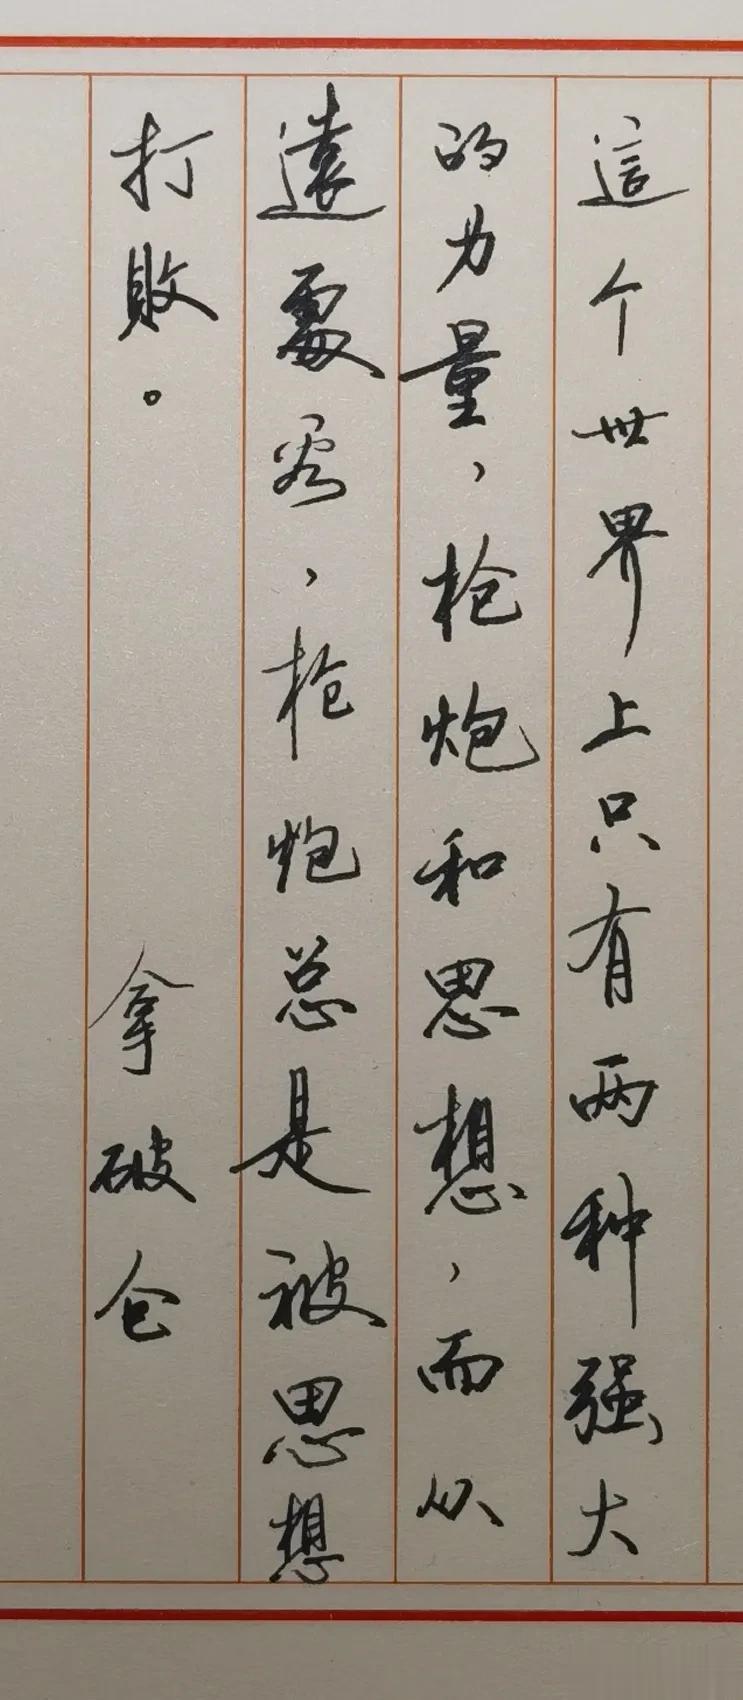 這个世界上只有两种强大
的力量，枪炮和思想，而从
遠處看，枪炮总是被思想
打敗。 拿破仑